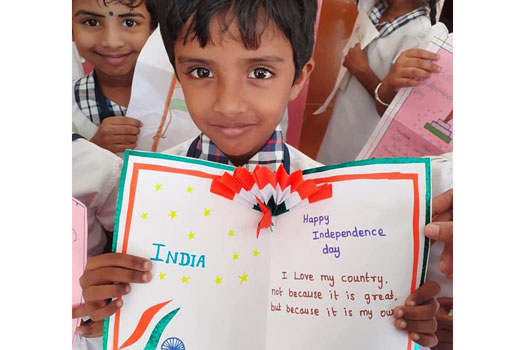 INDIA
Happy
Independence
day
I Love my country,
not because it is great,
but because it is my